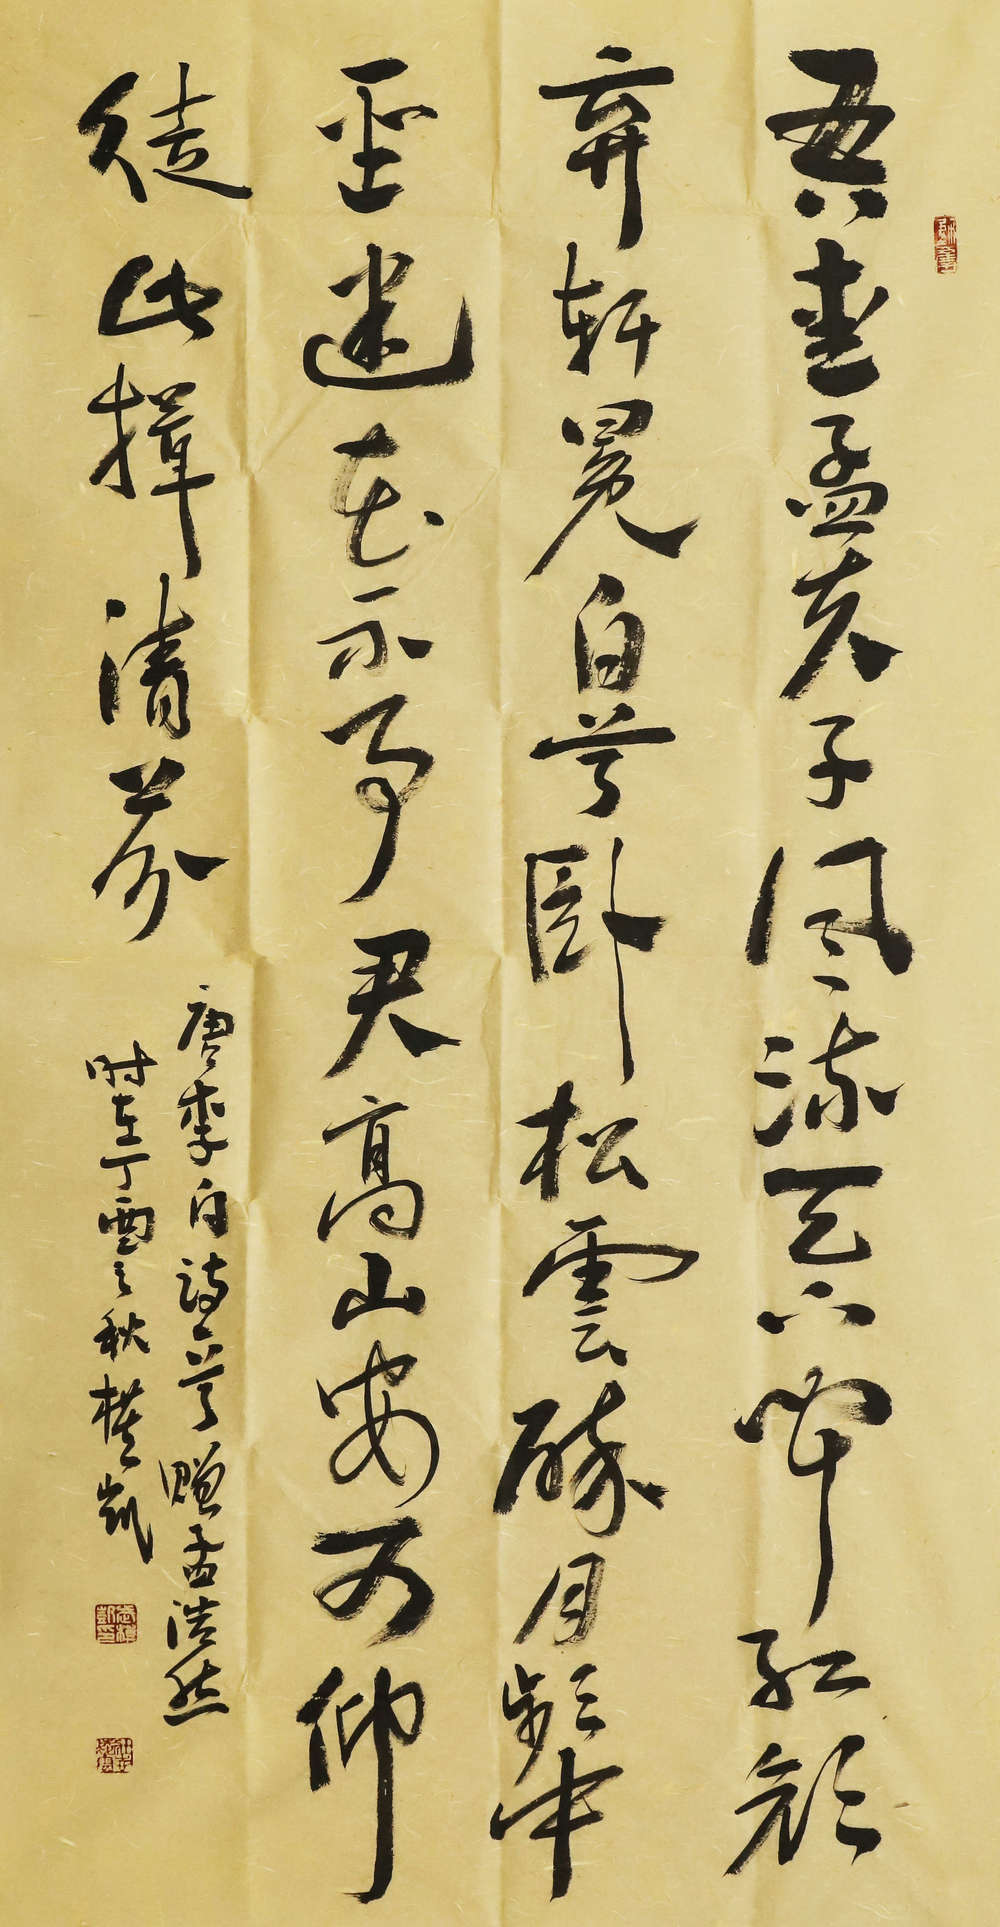 吾爱孟夫子风流天下闻红颜
弃轩冕白首卧松雲醉月频中
圣迷花不事君高山安可仰
徒此揖清芬
唐李白诗一首赠孟浩然
时在丁酉之秋楼凯